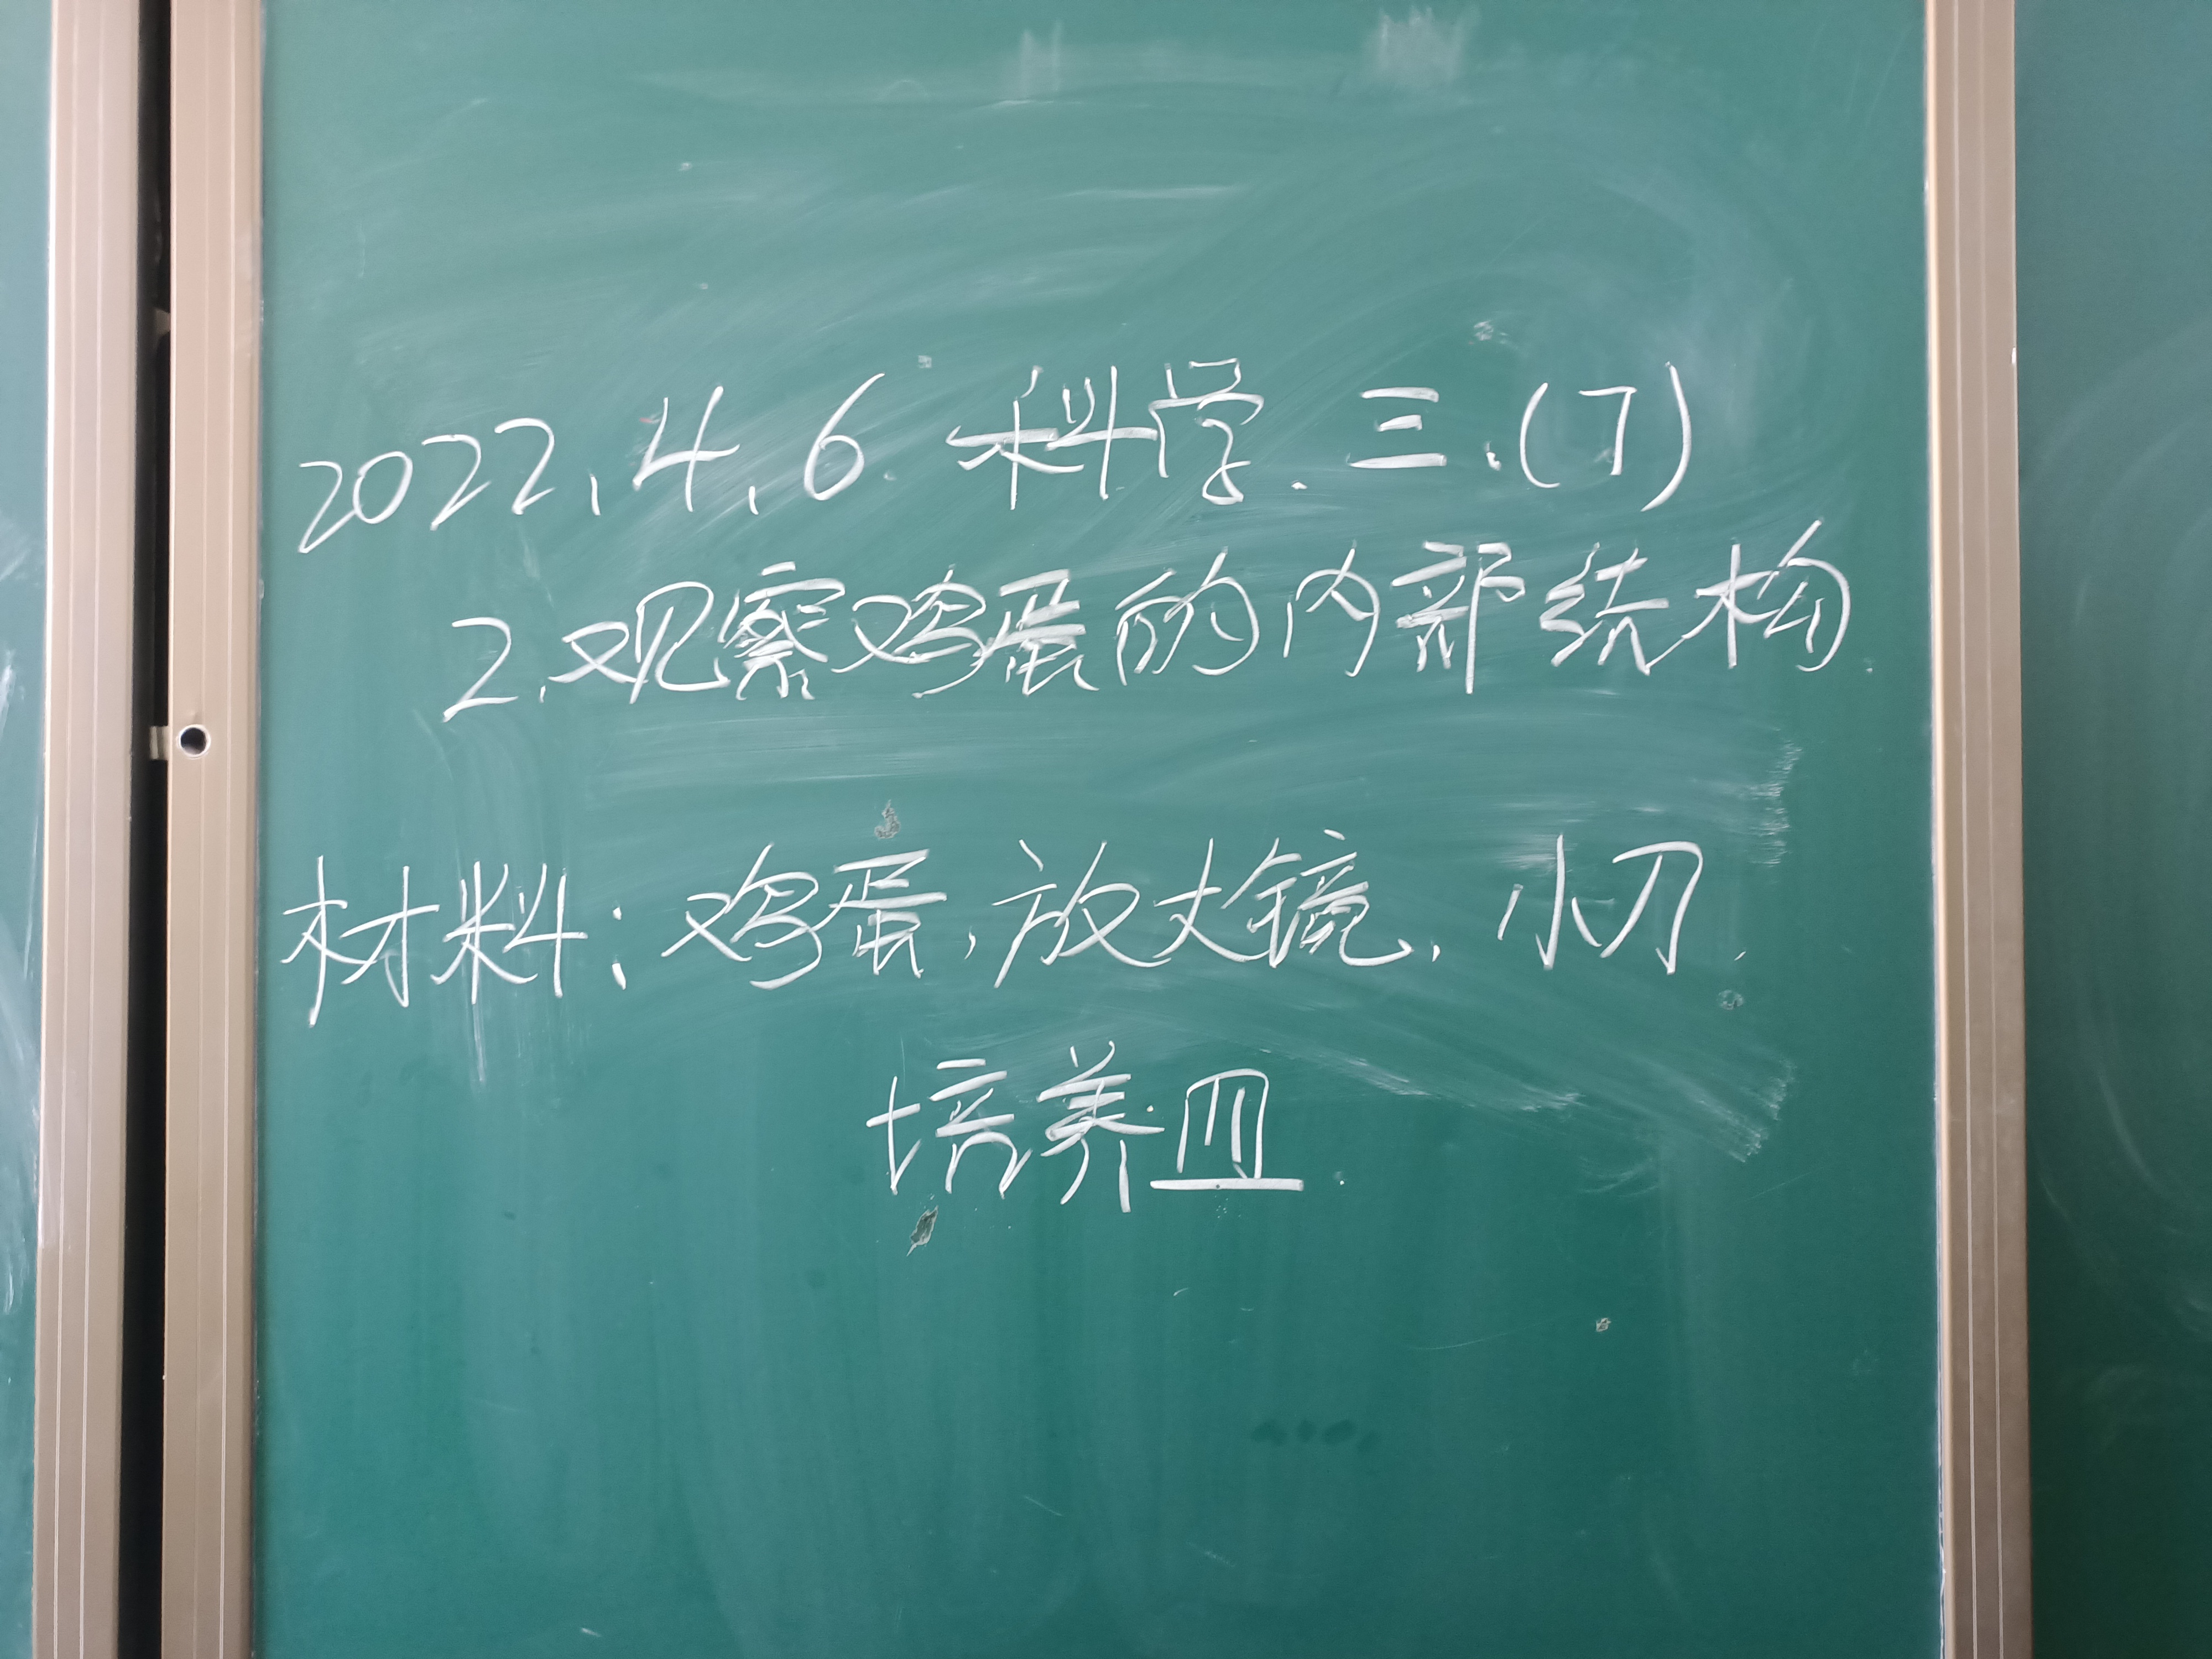 2022.4.6. 科学. 三.(7)
2.观察鸡蛋的内部结构.
材料:鸡蛋,放大镜,小刀.
培养皿.